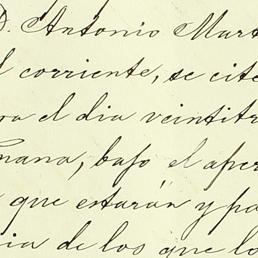 D. Antonio Mart
l corriente, se cite
ra el dia veintitr
ñana, bajo el aper
que estarán y pa
ia de los que lo